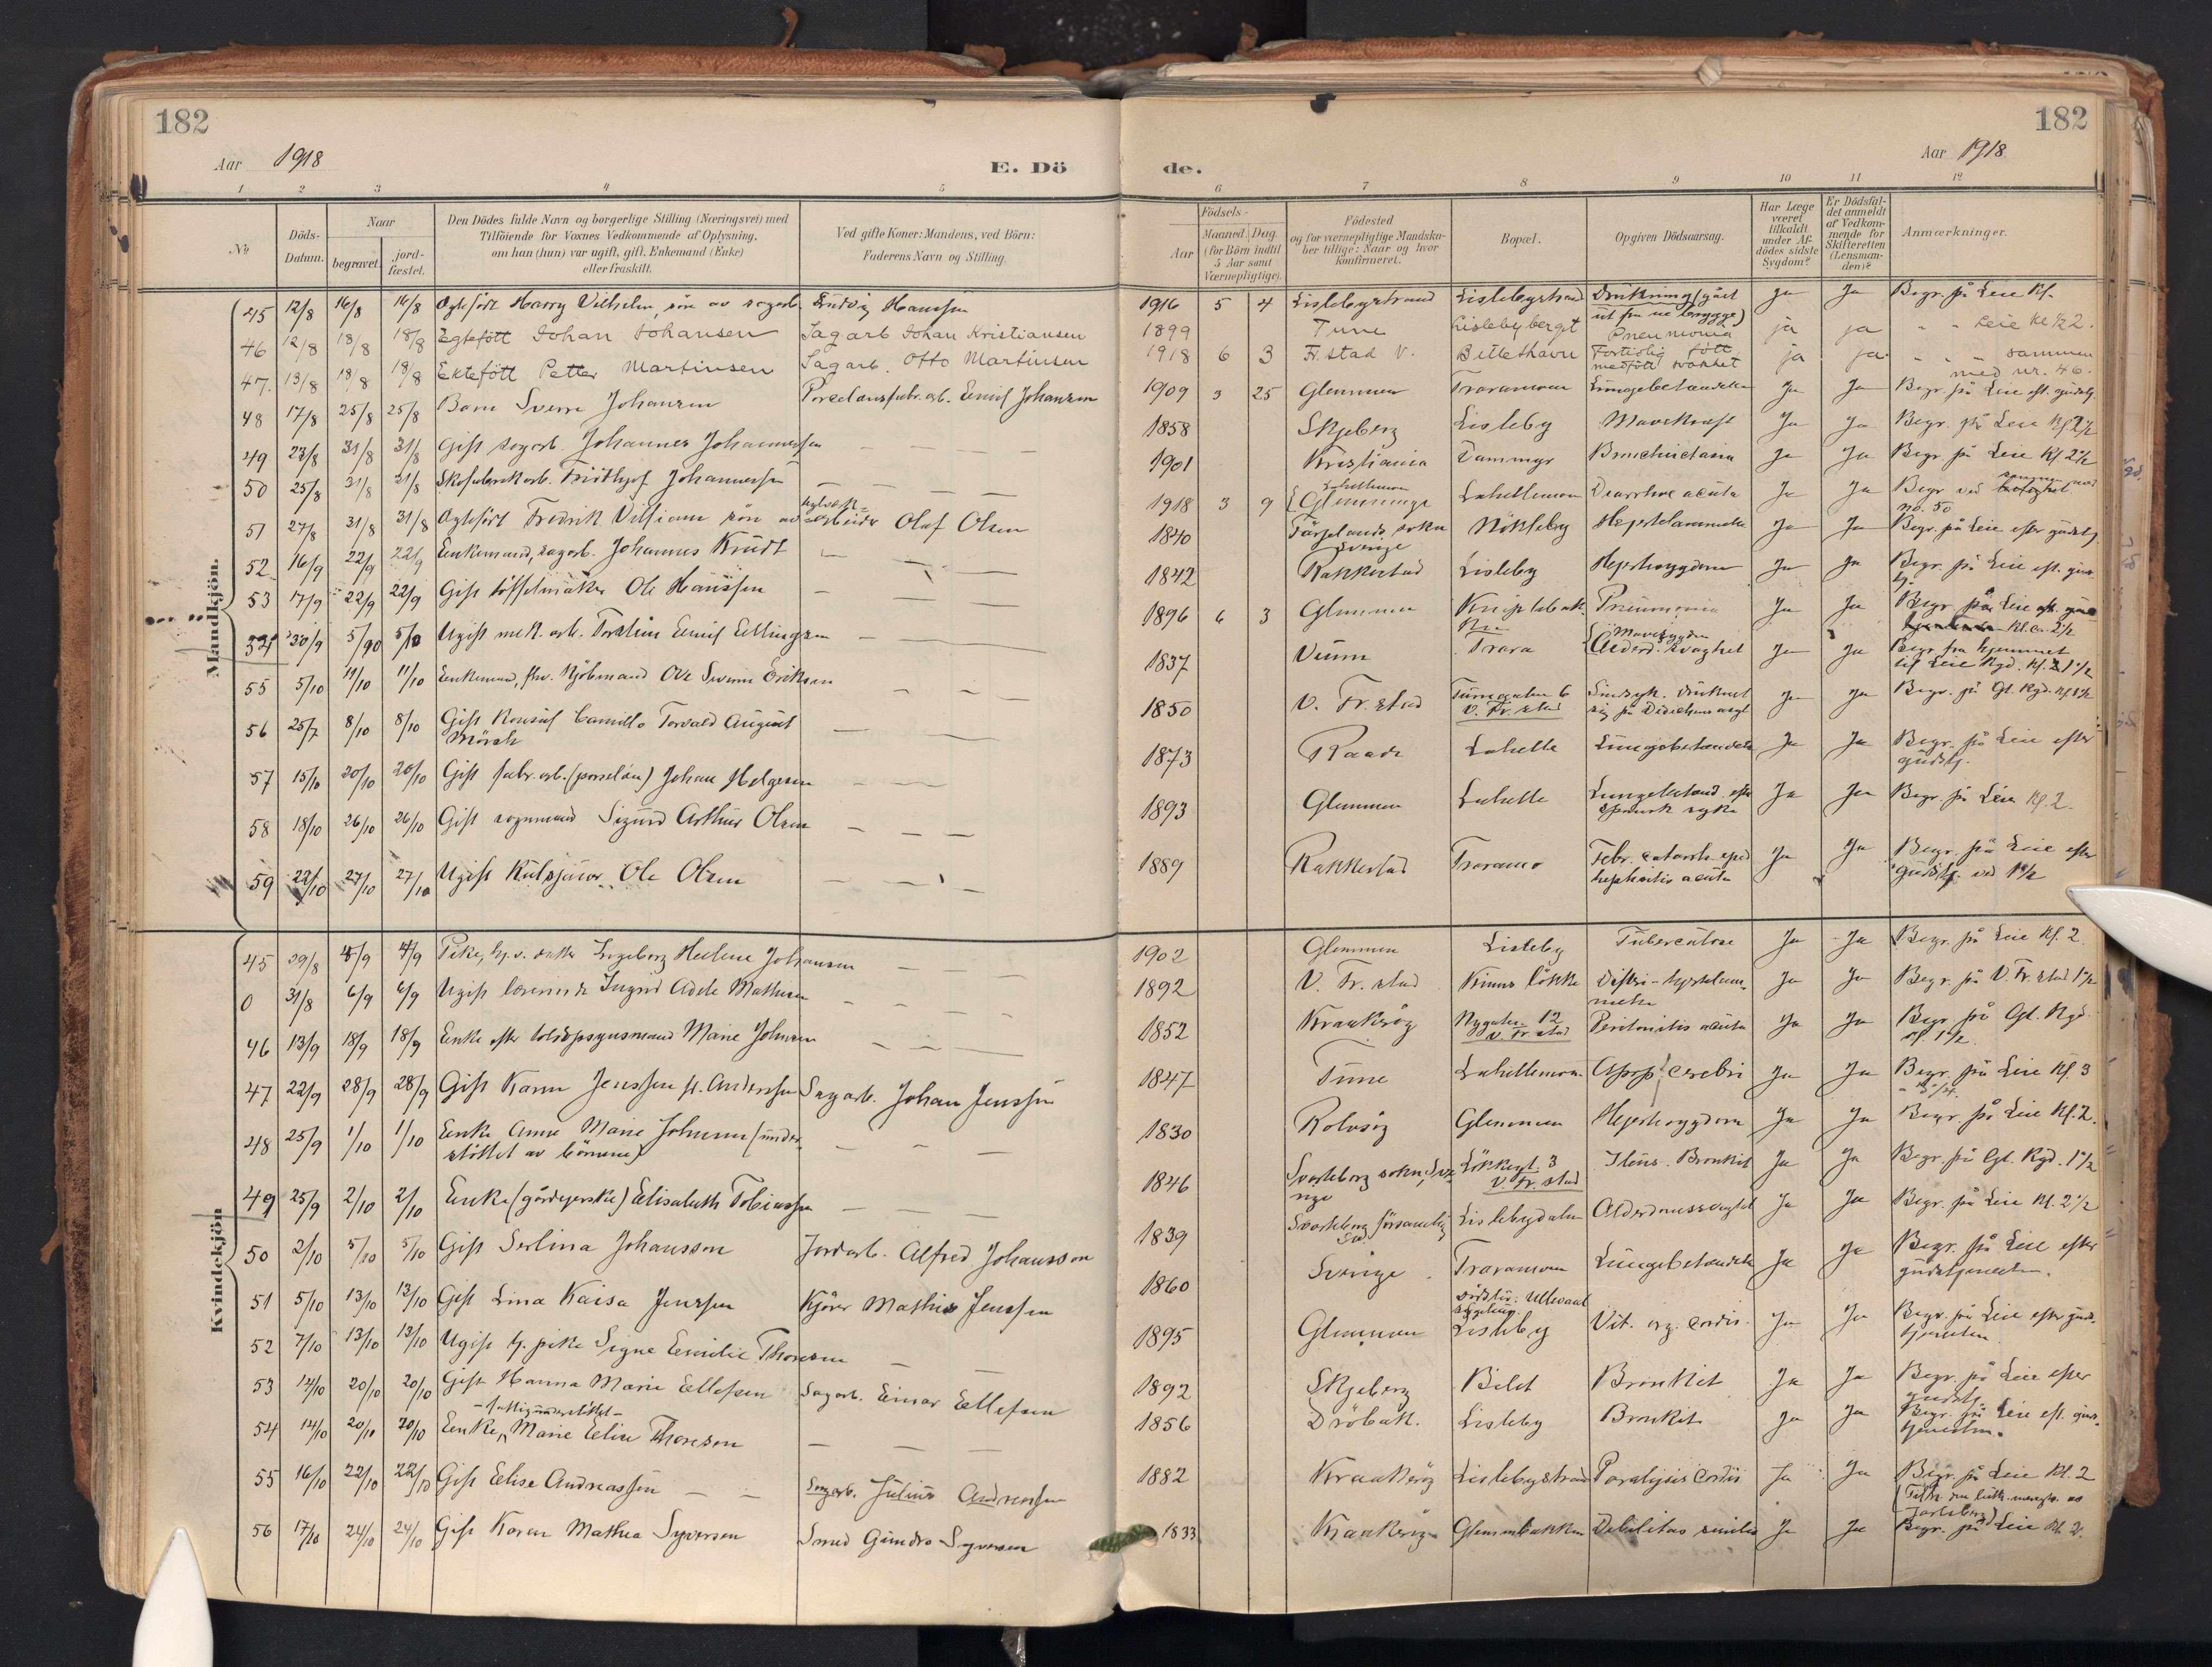 182
182
Aar 1918
E. Dö
de.
Aar 1918
1 2 3 4 5 6 7 8 9 10 11 12
No
Döds-Datum.
Naar
begravet.
jord-fæstet.
Den Dödes fulde Navn og borgerlige Stilling (Næringsvei) med
Tilföiende for Voxnes Vedkommende af Oplysning,
om han (hun) var ugift, gift, Enkemand (Enke)
eller fraskilt.
Ved gifte Koner: Mandens, ved Börn:
Faderens Navn og Stilling.
Födsels-
Aar
Maaned. Dag.
(for Börn indtil
5 Aar samt
Værnepligtige).
Födested
og for værnepligtige Mandska-
ber tillige: Naar og hvor
konfirmeret.
Bopæl.
Opgiven Dödsaarsag.
Har Læge
været
tilkaldt
under Af-
dödes sidste
Sygdom?
Er Dödsfal-
det anmeldt
af Vedkom-
mende for
Skifteretten
(Lensman-
den)?
Anmærkninger.
Mandkjön.
45 12/8 16/8 16/8 Ægtefödt Harry Vilhelm, sön av sagarb. Ludvig Hanssen 1916 5 4 Lislebystrand Lislebystrand Drukning (gået ut fra en brygge) Ja Ja Begr. på Leie Kl.
46 12/8 18/8 18/8 Egtefött Johan Johansen Sagarb Johan Kristiansen 1899 Tune Lisleby bergt Pneumonia ja ja " " Leie kl ½ 2.
47. 13/8 18/8 18/8 Ektefött Petter Martinsen Sagarb. Otto Martinsen 1918 6 3 Fr.stad V. Billethavn Fortidlig fött medfött svakhet ja ja " " " sammen med nr. 46.
48 17/8 25/8 25/8 Barn Sverre Johansen Porcelænsfabr. arb. Emil Johansen 1909 3 25 Glemmen Traramoen Lungebetændelse Ja Ja Begr. på Leie eft. gudstj.
49 23/8 31/8 31/8 Gift sagarb. Johannes Johannessen 1858 Skjeberg Lisleby Mavekræft Ja Ja Begr. på Leie Kl 2½
50 25/8 31/8 31/8 Skofabrikarb. Fridthjof Johannessen 1901 Kristiania Dammyr Ja Ja Begr. på Leie Kl. 2½
51 27/8 31/8 31/8 Ægtefödt Fredrik Villiam sön av arbeider Olaf Olsen 1918 3 9 Glemminge Lahellemoen Diarrhoe acuta Ja Ja Begr. ved no. 50
52 16/9 22/9 22/9 Enkemand, sagarb. Johannes Krudt 1840 Färgelands sokn Sverige Nökleby Hjertelammelse Ja Ja Begr. på Leie efter gudstj.
53 17/9 22/9 22/9 Gift töffelmaker Ole Hanssen 1842 Rakkestad Lisleby Hjertesygdom Ja Ja Begr. på Leie eft. guds-tj.
54 30/9 5/10 5/10 Ugift mek. arb. Torstein Emil Ellingsen 1896 6 3 Glemmen Kniplebak Pneumonia Ja Ja Begr på Leie eft. Kl. ca. 2½
55 5/10 11/10 11/10 Enkemand, fhv. Kjöbmand Ove Svenn Eriksen 1837 Trara Mavesygdom Alderd. svaghet Ja Ja Begr fra hjemmet til Leie Kgd. Kl. 1½
56 25/7 8/10 8/10 Gift Konsul Camillo Torvald August Mörch 1850 V. Fr. stad Turngaten 6 V. Fr. stad Sindsyk. Druknet sig på Ja Ja Begr. på Gl. Kgd. Kl 1½
57 15/10 20/10 20/10 Gift fabr. arb. (porselæn) Johan Helgesen 1873 Raade Lahelle Lungebetændelse Ja Ja Begr. på Leie efter gudstj.
58 18/10 26/10 26/10 Gift vognmand Sigurd Arthur Olsen 1893 Glemmen Lahelle Lungebetænd. efter spansk syke Ja Ja Begr. på Leie Kl. 2.
59 22/10 27/10 27/10 Ugift Kulsjauer Ole Olsen 1889 Rakkestad Traramo Febr. catarrh. epid nephritis acuta Ja Ja Begr. på Leie efter gudstj. ved 1½
Kvindekjön
45 29/8 4/9 4/9 Pike, hj.v. datter Ingeborg Helene Johansen 1902 Glemmen Lisleby Tuberculose Ja Ja Begr. på Leie Kl. 2
0 31/8 6/9 6/9 Ugift lærerinde Ingrid Adele Mathisen 1892 V. Fr. stad Kinus lökke Difteri-hjertelam-melse Ja Ja Begr. på V. Fr. stad 1½
46 13/9 18/9 18/9 Enke efter toldopsynsmand Marie Johnsen 1852 Kraakeröy Nygaten 12 V. Fr. stad Peritonitis acuta Ja Ja Begr. på Gl. Kgd. kl. 1½.
47 22/9 28/9 28/9 Gift Karen Jenssen f. Anderssen Sagarb. Johan Jenssen 1847 Tune Lahellemoen Apopl. cerebri Ja Ja Begr. på Leie Kl. 3
48 25/9 1/10 1/10 Enke Anne Marie Johnsen (under-stöttet av börnene) 1830 Rolvsöy Glemmen Hjertesygdom Ja Ja Begr. på Leie Kl. 2.
49 25/9 2/10 2/10 Enke (gårdejerske) Elisabeth Tobiassen 1846 Svarteborg sokn, Sve-rige Lökkegt. 3 V. Fr. stad Ileus. Bronkit Ja Ja Begr. på Gl. Kgd. 1½
50 2/10 5/10 5/10 Gift Serlina Johansson Jordarb. Alfred Johansson 1839 Svarteborg församling Sv. Lislebydalen Alderdomssvaghet Ja Ja Begr. på Leie Kl. 2½
51 5/10 13/10 13/10 Gift Lina Kaisa Jenssen Kjörer Mathis Jenssen 1860 Sverige Traramoen Lungebetændelse Ja Ja Begr. på Leie efter gudstjenesten.
52 7/10 13/10 13/10 Ugift hj. pike Signe Emilie Thoresen 1895 Glemmen Ullevaal sygehus. Lisleby Vit. org. cordis Ja Ja Begr. på Leie efter guds-tjenesten
53 14/10 20/10 20/10 Gift Hanna Marie Ellefsen Sagarb. Einar Ellefsen 1892 Skjeberg Bilet Bronkit Ja Ja Begr. på Leie efter gudstj.
54 14/10 20/10 20/10 Enke, - fattigunderstöttet - Marie Eline Thoresen 1856 Dröbak. Lisleby Bronkit Ja Ja Begr. på Leie eft. guds-tjenesten.
55 16/10 22/10 22/10 Gift Elise Andreassen Sagarb. Julius Andreassen 1882 Kraakeröy Lislebystrand Paralysis cordis Ja Ja Begr. på Leie Kl. 2
56 17/10 24/10 24/10 Gift Karen Mathea Syversen Smed Gundro Syversen 1833 Kraakeröy Glemmbakken Debilitas senilis Ja Ja Begr. på Leie Kl 2.